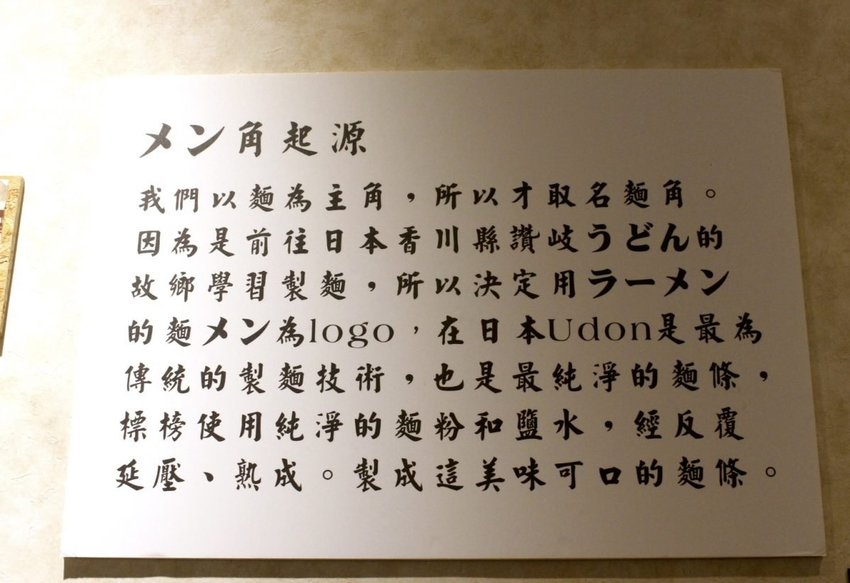 メン角起源
我們以麵為主角，所以才取名麵角。
因為是前往日本香川縣讚岐うどん的
故鄉學習製麵，所以決定用ラーメン
的麵メン為logo，在日本Udon是最為
傳統的製麵技術，也是最純淨的麵條，
標榜使用純淨的麵粉和鹽水，經反覆
延壓、熟成。製成這美味可口的麵條。